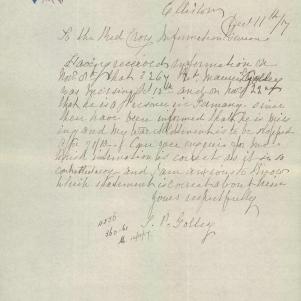 Elliston
Dec 11th 17
To the Red Cross Information Bureau
Having received information on
Nov 8th that 3267 Pt Maurice Golley
was missing Oct 12th and on Nov 22nd
that he is a Prisoner in Germany since
then have been informed that he is miss
ing and my war allotment is to be stopped
after Can you enquire for me
which information is correct as it is so
contradictory and I am anxious to know
which statement is correct about him
yours respectfully
J. P. Golley